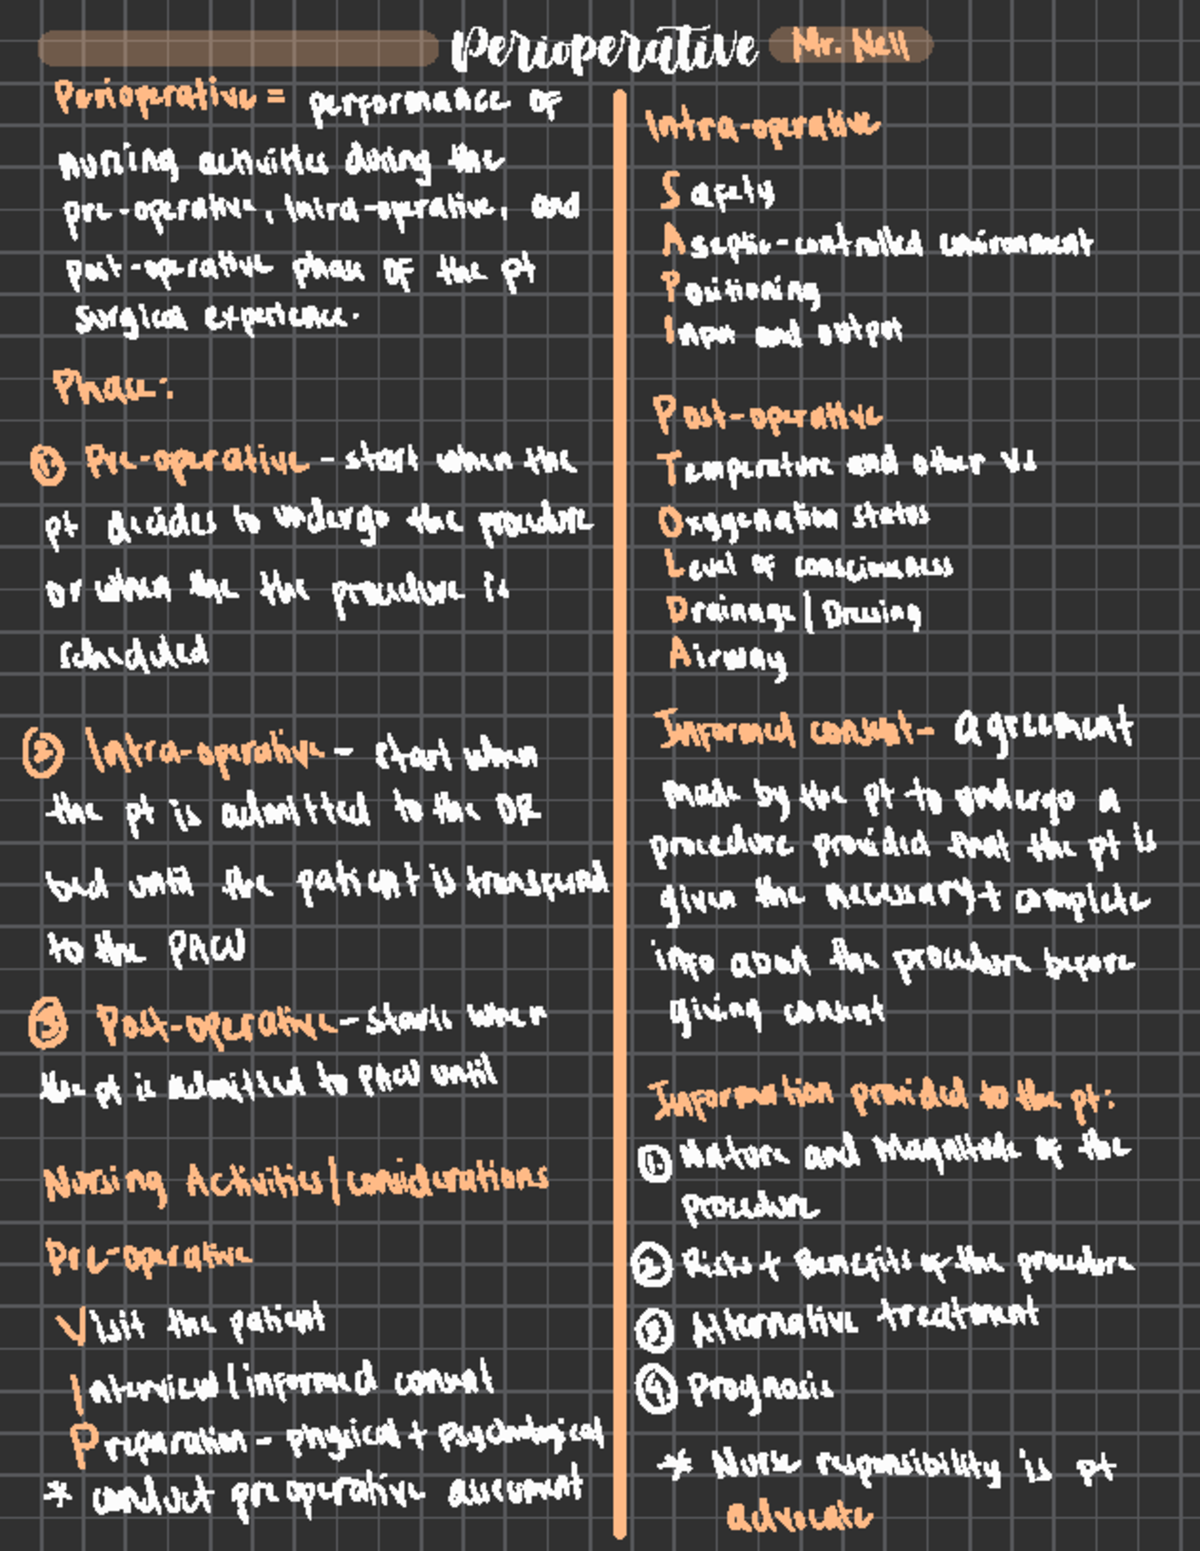 Perioperative Mr. Nell
Perioperative = performance of
nursing activities during the
pre-operative, Intra-operative, and
post-operative phase OF the pt
surgical experience.
Phase:
① Pre-operative - start when the
pt decides to undergo the procedure
or when the the procedure is
scheduled
② Intra-operative - start when
the pt is admitted to the OR
bed until the patient is transferred
to the PACU
③ Post-operative - starts when
the pt is admitted to PACU until
Nursing Activities/considerations
Pre-operative
Visit the patient
Interview/informed consent
Preparation - physical + Psychological
* conduct preoperative assessment
Intra-operative
Safety
Aseptic-controlled environment
Positioning
Input and output
Post-operative
Temperature and other Vs
Oxygenation status
Level of consciousness
Drainage/Dressing
Airway
Informed consent - agreement
made by the pt to undergo a
procedure provided that the pt is
given the necessary + complete
info about the procedure before
giving consent
Information provided to the pt:
① Nature and Magnitude of the
procedure
② Risks + Benefits of the procedure
③ Alternative treatment
④ Prognosis
* Nurse responsibility is pt
advocate